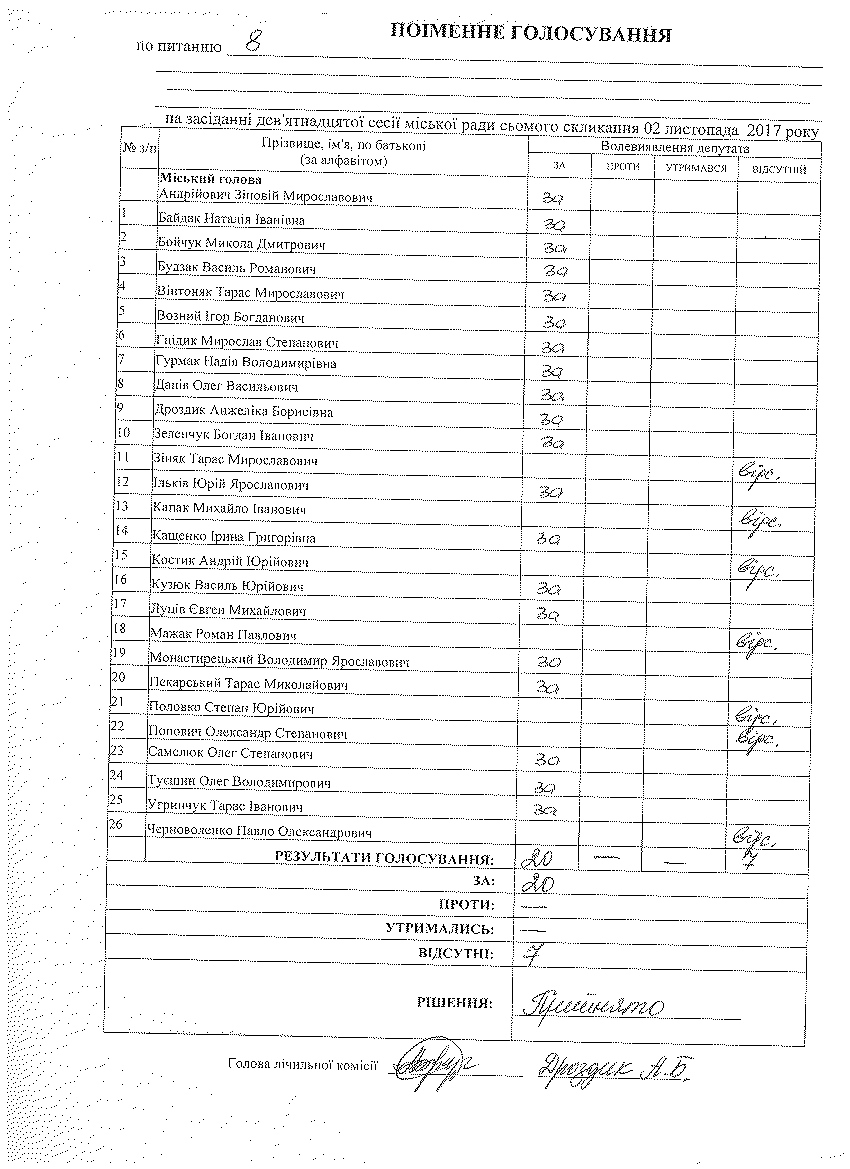 ПОІМЕННЕ ГОЛОСУВАННЯ
по питанню 8
на засіданні дев'ятнадцятої сесії міської ради сьомого скликання 02 листопада 2017 року
№ з/п Прізвище, ім'я, по батькові (за алфавітом) Волевиявлення депутата
ЗА ПРОТИ УТРИМАВСЯ ВІДСУТНІЙ
Міський голова
Андрійович Зіновій Мирославович за
1 Байдак Наталія Іванівна за
2 Бойчук Микола Дмитрович за
3 Будзак Василь Романович за
4 Вінтоняк Тарас Мирославович за
5 Возний Ігор Богданович за
6 Гнідик Мирослав Степанович за
7 Гурмак Надія Володимирівна за
8 Данів Олег Васильович за
9 Дроздик Анжеліка Борисівна за
10 Зеленчук Богдан Іванович за
11 Зіняк Тарас Мирославович відс.
12 Ільків Юрій Ярославович за
13 Капак Михайло Іванович відс.
14 Кащенко Ірина Григорівна за
15 Костик Андрій Юрійович відс.
16 Кузюк Василь Юрійович за
17 Луців Євген Михайлович за
18 Мажак Роман Павлович відс.
19 Монастирецький Володимир Ярославович за
20 Пекарський Тарас Миколайович за
21 Половко Степан Юрійович відс.
22 Попович Олександр Степанович відс.
23 Самелюк Олег Степанович за
24 Туєшин Олег Володимирович за
25 Угринчук Тарас Іванович за
26 Черноволенко Павло Олександрович відс.
РЕЗУЛЬТАТИ ГОЛОСУВАННЯ: 20 — — 7
ЗА: 20
ПРОТИ: —
УТРИМАЛИСЬ: —
ВІДСУТНІ: 7
РІШЕННЯ: Прийнято
Голова лічильної комісії Дроздик А.Б.